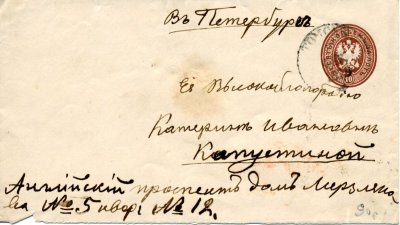 Въ Петербургъ.
Ея Высокоблагородію
Катеринѣ Ивановнѣ
Капустиной
Англійскій проспектъ домъ Мерзляко
ва № 5 квар. № 12.
10